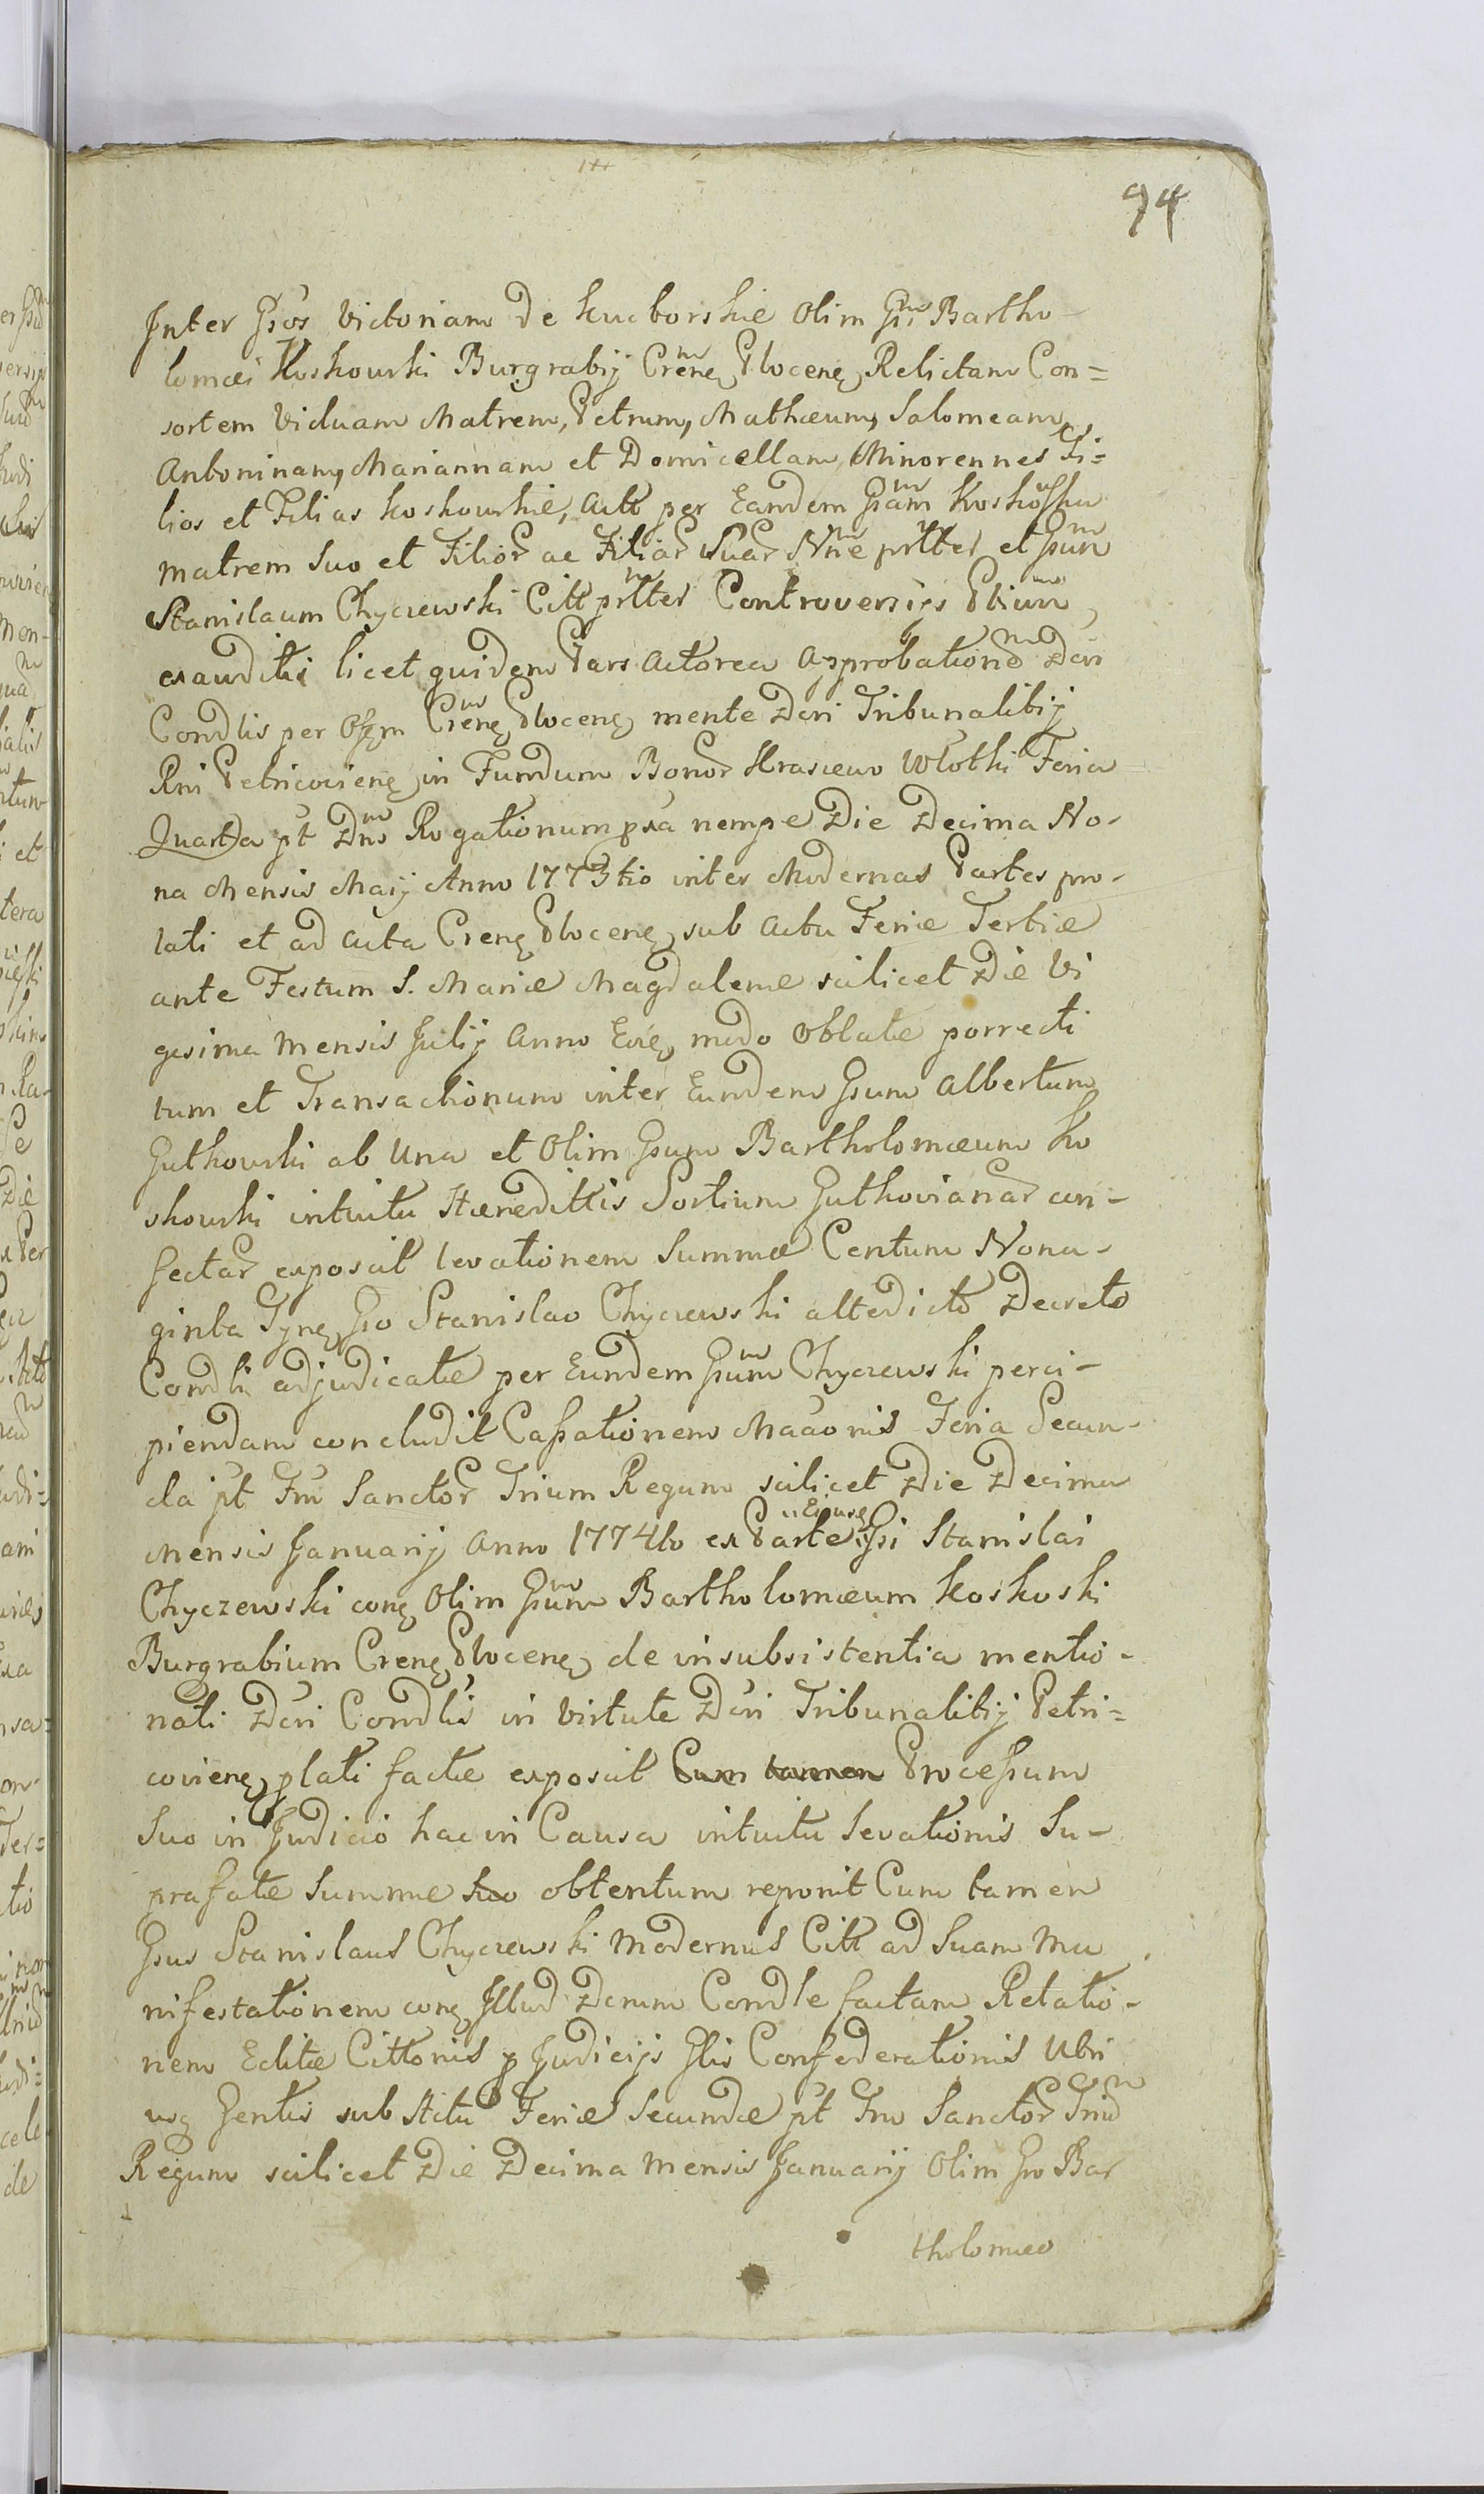 94
Inter Gsos Victoriam de Kucborskie olim Gsi Bartho-
lomæi Koskowski Burgrabij Crenẽ Plocenẽ Relictam Con=
sortem Viduam Matrem, Petrum, Mathæum, Salomeam,
Antoninam, Mariannam et Domicellam, Minorennes Fi=
lios et Filias Koskowskie, Actt per Eandem Gsam Koskoska
Matrem suo et Filior ac Filiar Suar Nne prttes et Gsum
Stanislaum Chyczewski Citt prttes Controversijs Ptium
exauditis licet quidem Pars Actorea Approbationẽ Dcri
Condlis per Offm Crenẽ Plocenẽ mente Dcri Tribunalitij
Rni Petricovienẽ in Fundum Bonor Krasiewo Wlotki Feria
Quarta pt Dnẽ Rogationum pxa nempe Die Decima No-
na Mensis Maij Anno 1773tio inter Modernas Partes pro-
lati et ad Acta Crenẽ Plocenẽ sub Actu Feriæ Tertiæ
ante Festum S. Mariæ Magdalenæ scilicet Die Vi
gesima Mensis Julij Anno Eoẽ, modo Oblatæ porrecti
tum et Transactionum inter Eundem Gsum Albertum
Gutkowski ab Una et Olim Gsum Bartholomæum Ko
skowski intuitu Hæredittis Sortium Gutkovianar con-
fectar exposcit levationem Summæ Centum Nona-
ginta Tynẽ Gso Stanislao Chyczewski altedicto Decreto
Condli adjudicatæ per Eundem Gsum Chyczewski perci-
piendam concludit Cassationem Maãonis Feria Secun-
da pt Fm Sanctor Trium Regum scilicet Die Decima
Mensis Januarij Anno 1774to ex Parte Ejusẽ Gsi Stanislai
Chyczewski conẽ Olim Gsum Bartholomæum Koskoski
Burgrabium Crenẽ Plocenẽ de insubsistentia mentio-
nati Dcri Condlis in Virtute Dcri Tribunalitij Petri=
covienẽ plati factæ exposcit Cum tamen Processum
Suo in Judicio hac in Causa intuitu levationis Su-
prafatæ Summæ suo obtentum reponit Cum tamen
Gsus Stanislaus Chyczewski Modernus Citt ad Suam Ma
nifestationem conẽ Illud Dcrum Condle factam Relatio-
nem Editæ Cittonis p Judicijs Glis Confederationis Utri
usq Gentis sub Actu Feriæ Secundæ pt Fm Sanctor Triu
Regum scilicet Die Decima Mensis Januarij Olim Gso Bar
tholomæo